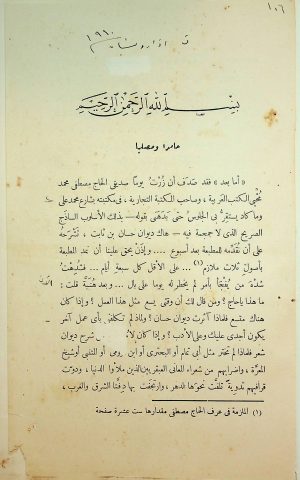 ١٠٦
١٩٦٠
بسم الله الرحمن الرحيم
حامدا ومصليا
« أما بعد » فقد صدف أن زُرْتُ يوما صديقى الحاج مصطفى محمد
مُحْيى الكتب العربية ، وصاحب المكتبة التجارية ، فى مكتبته بشارع محمد على
وما كاد يستقرُّ بى الجلوس حتى بَدَهَنى بقوله — بذلك الأسلوب الساذج
الصريح الذى لا جمجمة فيه — هاك ديوان حسان بن ثابت ، لتشرحَه
على أن تُقدِّمه للمطبعة بعد أسبوع .... وإذن يحق علينا أن تمد المطبعة
بأصول ثلاث ملازم (١) ... على الأقل كل سبعة أيام ... فشُدِهتُ
شَدْه من يُفْجَأ بأمر لم يخطر له يوما على بال ... وبعد هُنَيَّة قلت :
ما هذا يا حاج ؟ ومن قال لك أن وقتى يسع مثل هذا العمل ؟ وإذا كان
هناك متسع فلماذا آثرت ديوان حسان ؟ ولماذا لم تكلفنى بأى عمل آخر
يكون أجدى عليك وعلى الأدب ؟ وإذا كان لا شرح ديوان
شعر فلماذا لم تختر مثل أبى تمام أو البحترى أو ابن رومى أو المتنبى أو شيخ
المعرَّة ، وأضرابهم من شعراء المعانى العبقريين الذين ملأوا الدنيا ، ودوّت
قوافيهم تَدْوِيةً تلفَّت نحوها الدهر ، وارتجفت بها دفتا الشرق والغرب ،
(١) الملزمة فى عرف الحاج مصطفى مقدارها ست عشرة صفحة